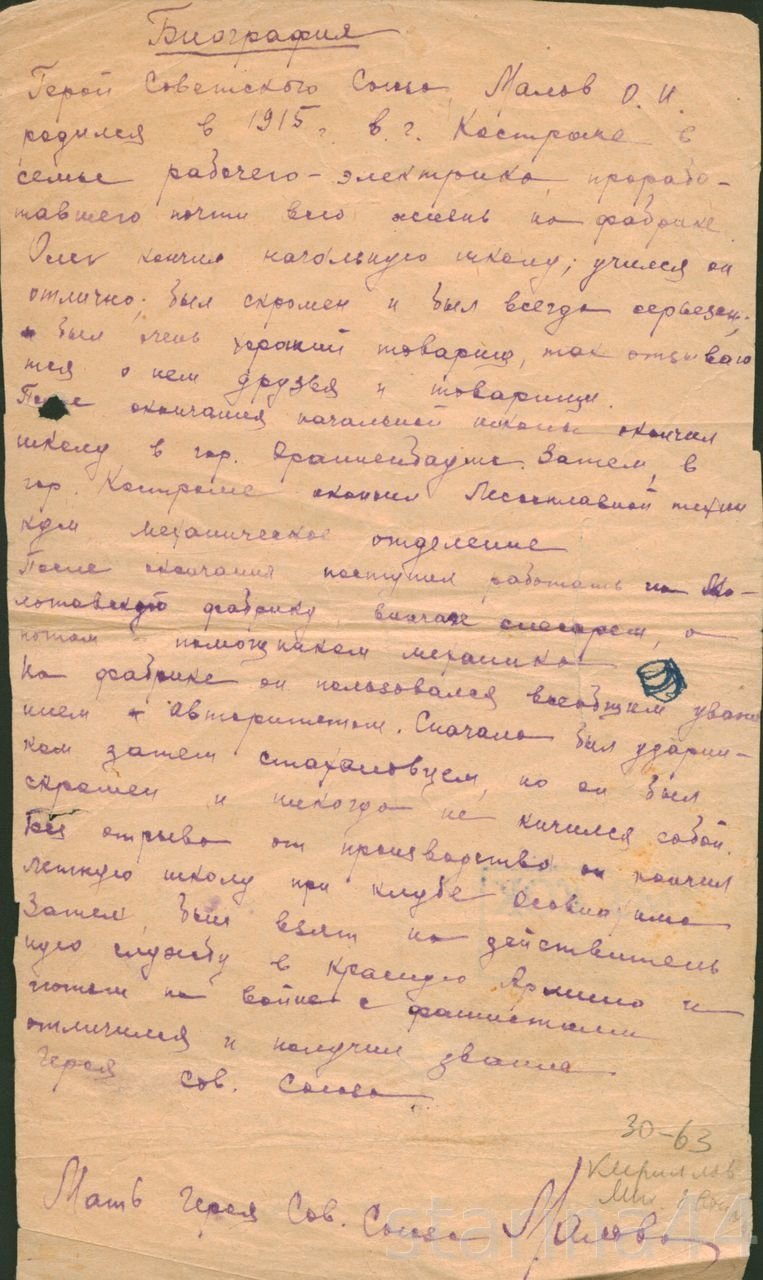 Биография
Герой Советского Союза Малов О. И.
родился в 1915 г. в г. Костроме в
семье рабочего-электрика, прорабо-
тавшего почти всю жизнь на фабрике.
Олег кончил начальную школу; учился он
отлично; был скромен и был всегда серьезен;
был очень хороший товарищ, так отзываю
тся о нем друзья и товарищи.
После окончания начальной школы окончил
школу в гор. Ораниенбауме. Затем, в
гор. Костроме окончил Лесосплавной техни
кум, механическое отделение
После окончания поступил работать на Мо-
лотовскую фабрику, вначале слесарем, а
потом помощником механика
На фабрике он пользовался всеобщим уваже
нием и авторитетом. Сначала был ударни-
ком затем стахановцем, но он был
скромен и никогда не кичился собой.
Без отрыва от производства он кончил
летную школу при клубе Осовиахима
Затем был взят на действитель
ную службу в Красную Армию и
потом на войне с фашистами
отличился и получил звание
Героя Сов. Союза
30-63
Кириллов
Мих.
Мать Героя Сов. Союза Малова
starina44